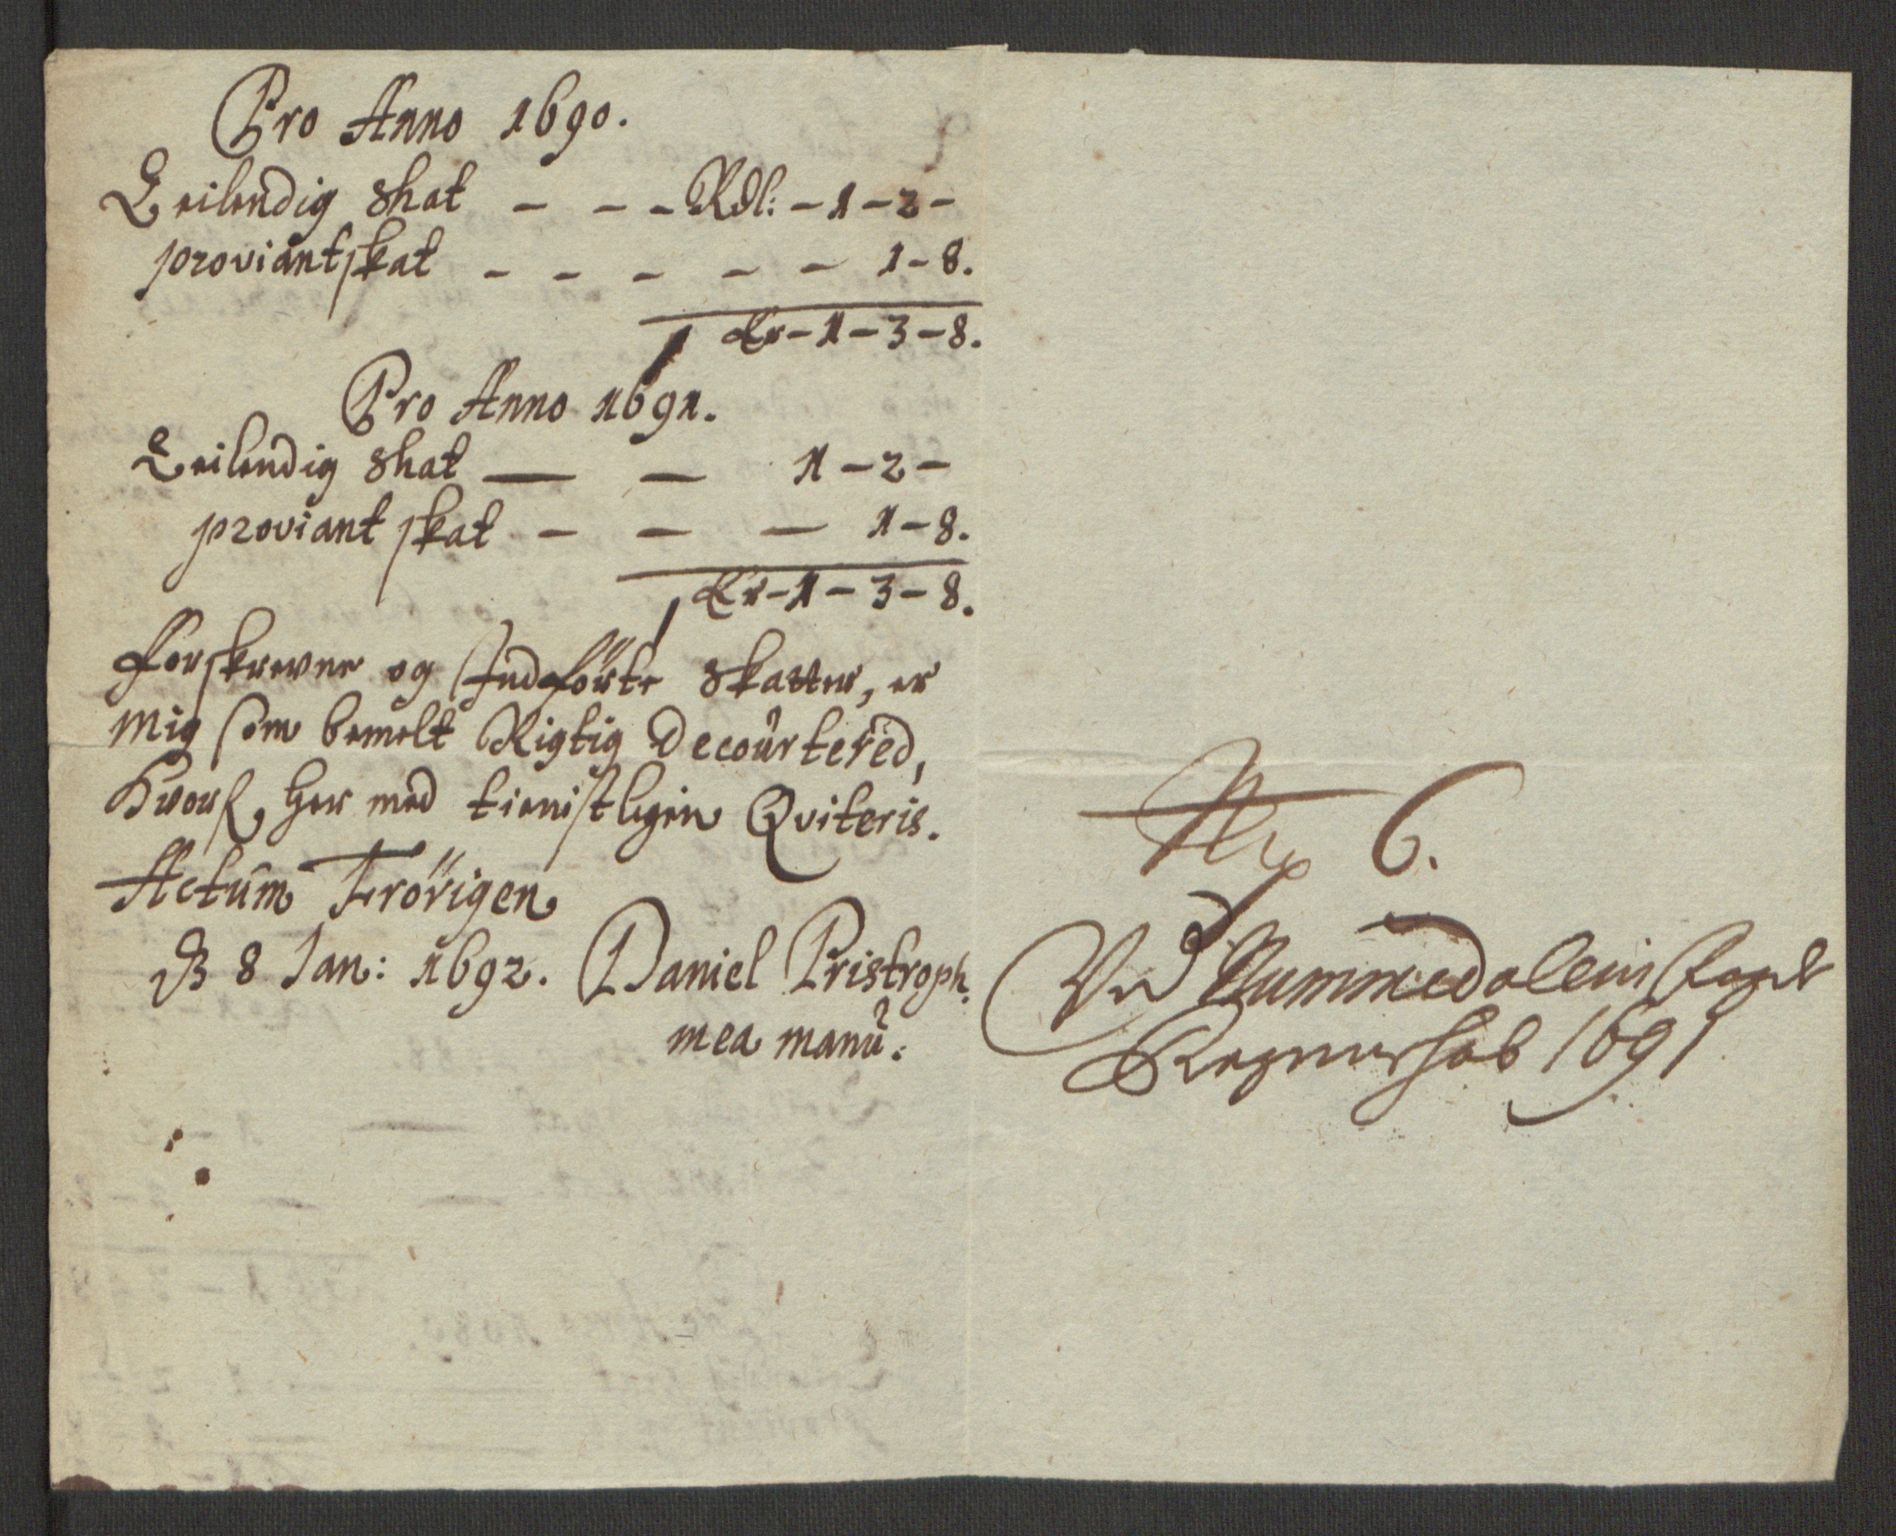 Pro Anno 1690.
Leilendig skat - - - Rdl: - 1 - 2 -
proviantskat - - - - - 1 - 8.
Er - 1 - 3 - 8.
Pro Anno 1691.
Leilendig skat — — 1 - 2 -
proviant skat - - — 1 - 8.
Er - 1 - 3 - 8.
Forskrevne og Indförte Skatter, er
mig som bemelt Rigtig Decourtered,
Hvorf. her med tienistligen Qviteris.
Actum Frörigen
D 8 Jan: 1692. Daniel Pristroph.
mea manu.
No 6.
Ved Nummedalens Fogd
Regnerskab 1691